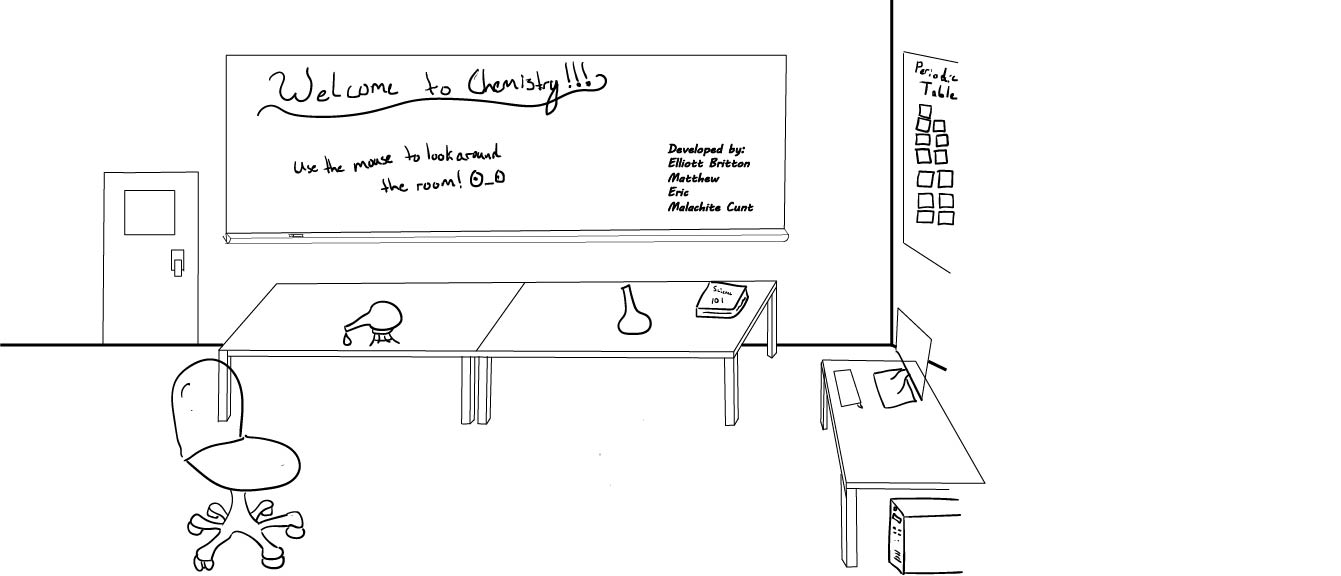 Welcome to Chemistry!!!
Use the mouse to look around
the room! O_O
Developed by:
Elliott Britton
Matthew
Eric
Malachite Cunt
Periodic
Table
Science
101